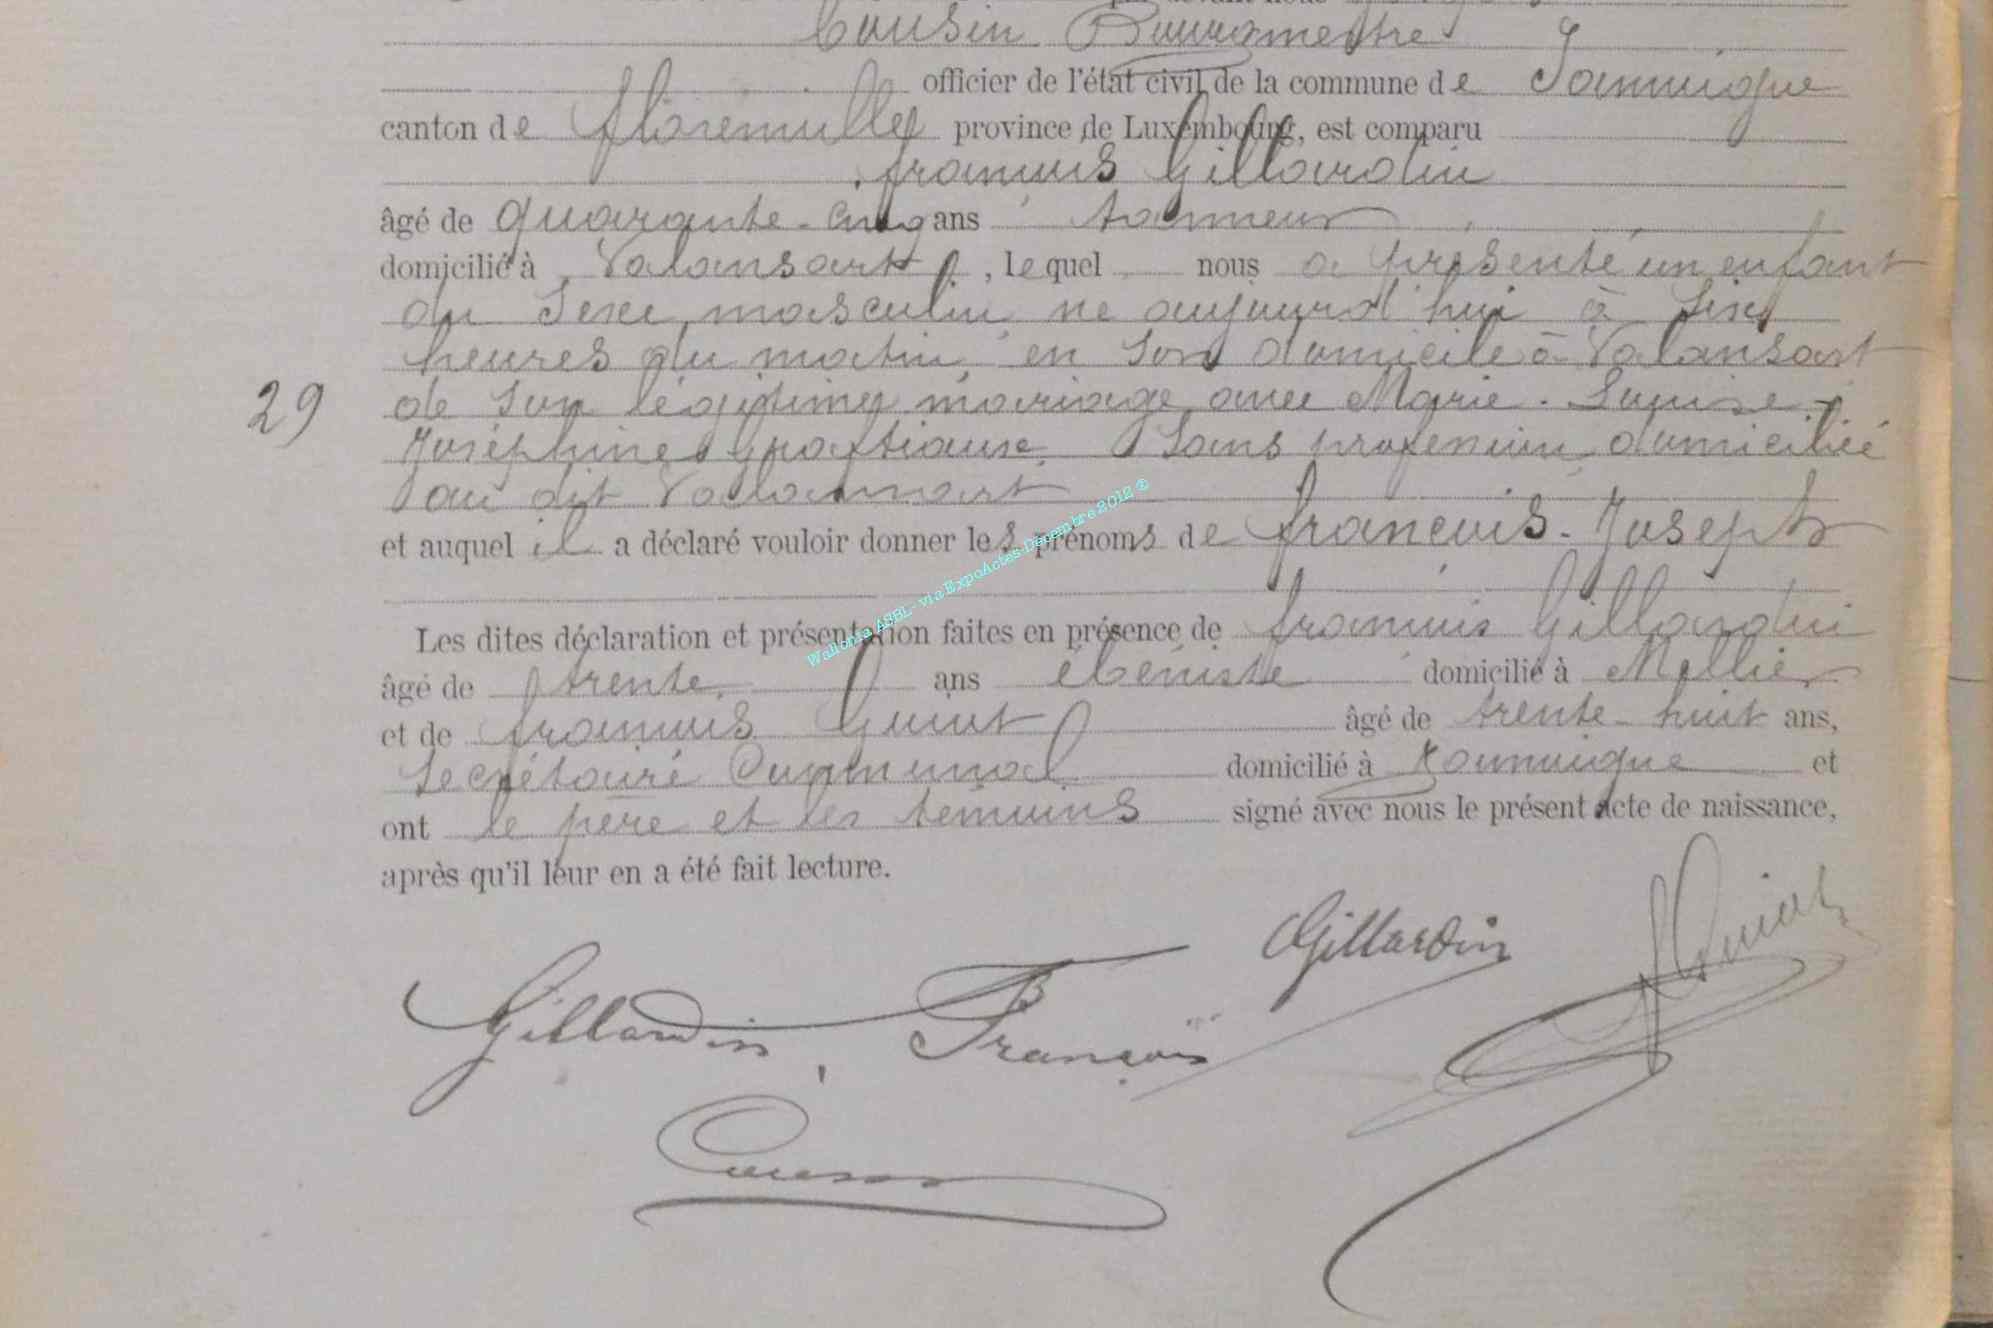 Cousin Bourgmestre
officier de l'état civil de la commune de Jamoigne
canton de florenville province de Luxembourg, est comparu
françois Gillardin
âgé de quarante-cinq ans tanneur
domicilié à Valansart, lequel nous a présenté un enfant
du sexe masculin né aujourd'hui à six
heures du matin, en son domicile à Valansart
29
de son légitime mariage avec Marie-Louise-
Joséphine Sans profession domiciliée
au dit Valansart
et auquel il a déclaré vouloir donner les prénoms de françois-Joseph
Les dites déclaration et présentation faites en présence de françois Gillardin
âgé de trente ans ébéniste domicilié à Mellier
et de françois Guiot âgé de trente-huit ans,
Secrétaire Communal domicilié à Jamoigne et
ont le père et les témoins signé avec nous le présent acte de naissance,
après qu'il leur en a été fait lecture.
Gillardin
Guiot
Gillardin, François
Cousin
Wallonia ASBL - via ExpoActes-Décembre 2012 ®